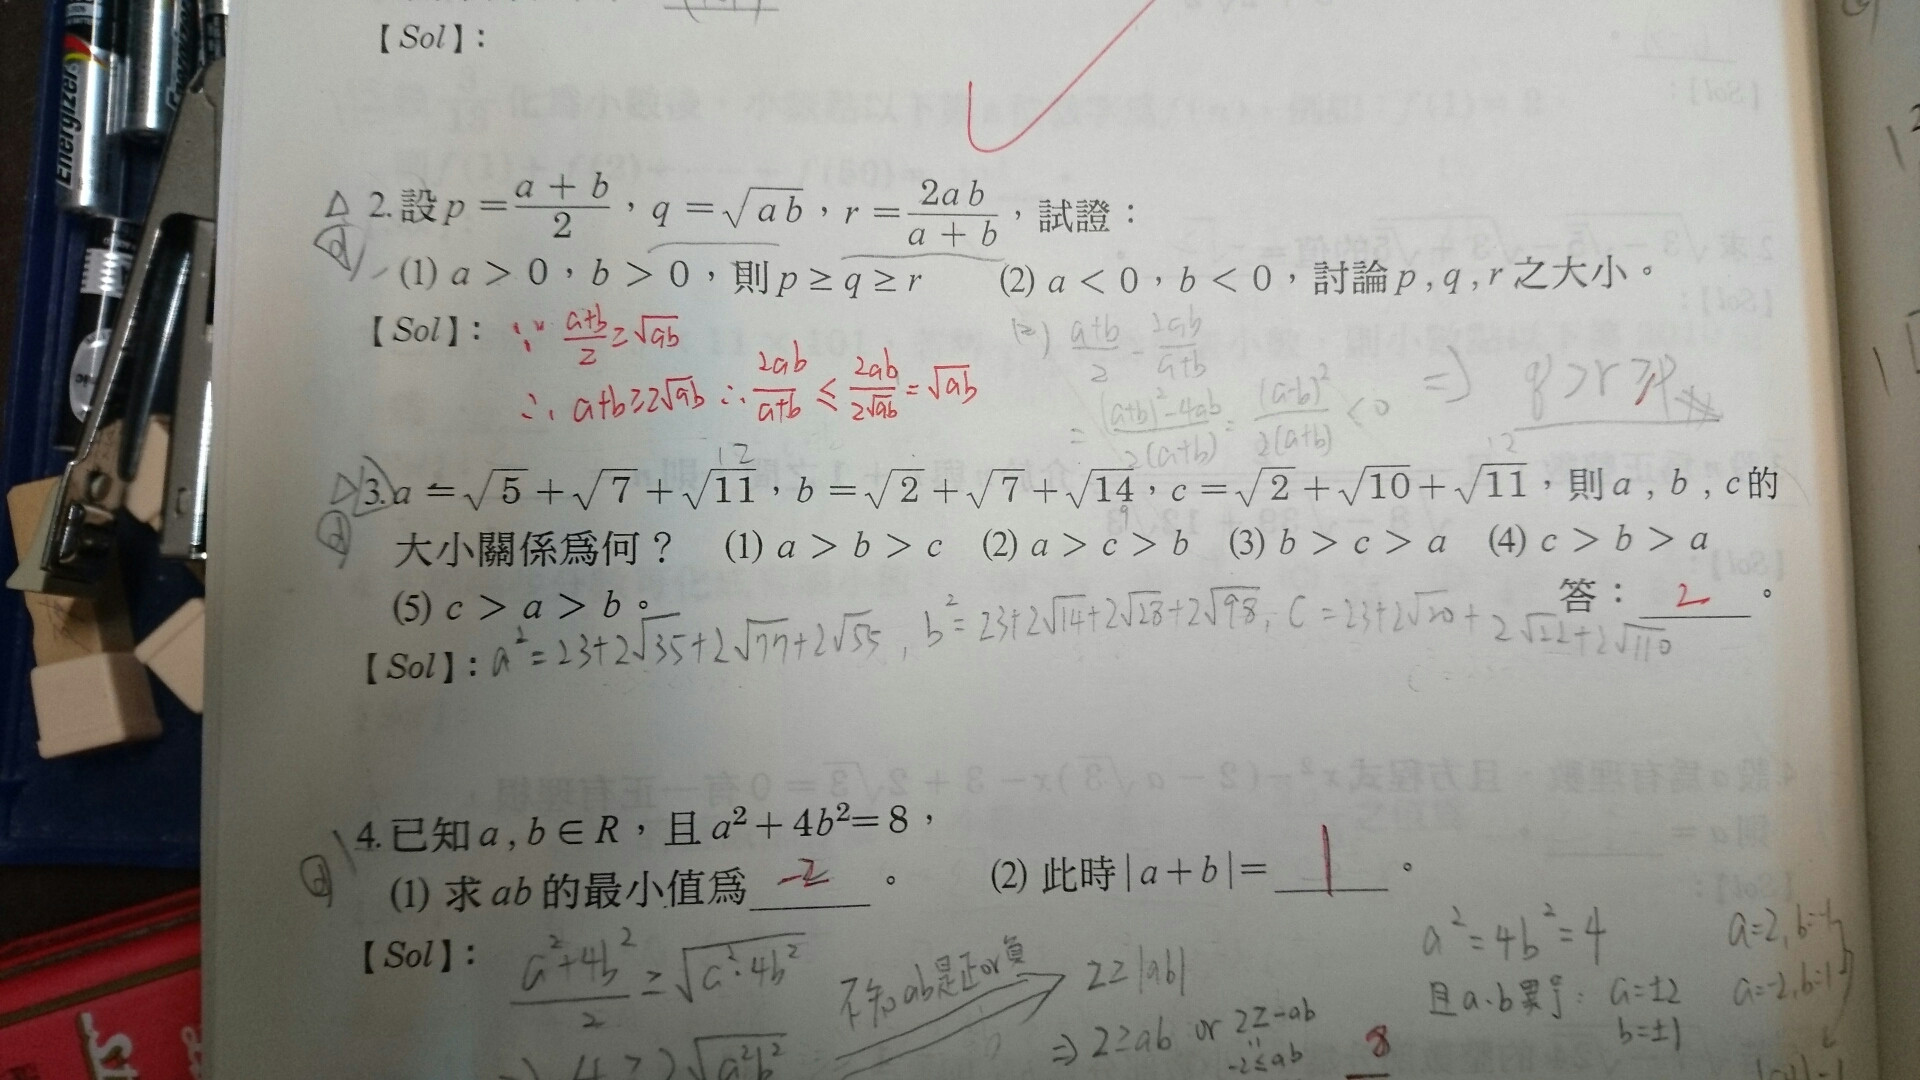 【Sol】:
Energizer
2. 設 p = \frac{a + b}{2},q = \sqrt{ab},r = \frac{2ab}{a + b},試證:
(1) a > 0,b > 0,則 p ≥ q ≥ r (2) a < 0,b < 0,討論 p , q , r 之大小。
【Sol】: ∵ \frac{a+b}{2} ≥ \sqrt{ab} (2) \frac{a+b}{2} - \frac{2ab}{a+b}
∴ a+b ≥ 2\sqrt{ab} ∴ \frac{2ab}{a+b} ≤ \frac{2ab}{2\sqrt{ab}} = \sqrt{ab}
= \frac{(a+b)^2-4ab}{2(a+b)} = \frac{(a-b)^2}{2(a+b)} < 0 ⇒ q > r ≥ p
12 12
3. a = \sqrt{5} + \sqrt{7} + \sqrt{11},b = \sqrt{2} + \sqrt{7} + \sqrt{14},c = \sqrt{2} + \sqrt{10} + \sqrt{11},則 a , b , c 的
9
大小關係爲何? (1) a > b > c (2) a > c > b (3) b > c > a (4) c > b > a
(5) c > a > b。 答: 2 。
【Sol】: a^2 = 23+2\sqrt{35}+2\sqrt{77}+2\sqrt{55} , b^2 = 23+2\sqrt{14}+2\sqrt{28}+2\sqrt{98}, C = 23+2\sqrt{20}+2\sqrt{22}+2\sqrt{110}
4. 已知 a , b ∈ R,且 a^2 + 4b^2 = 8,
(1) 求 ab 的最小值爲 -2 。 (2) 此時 | a + b | = 1 。
【Sol】: \frac{a^2+4b^2}{2} ≥ \sqrt{a^2·4b^2} 不知ab是正or負 2≥|ab| a^2=4b^2=4 a=2, b=-1
⇒ 4 ≥ 2\sqrt{a^2b^2} ⇒ 2≥ab or 2≥-ab 且a、b異号: a=±2 a=-2, b=1
-2≤ab b=±1
8